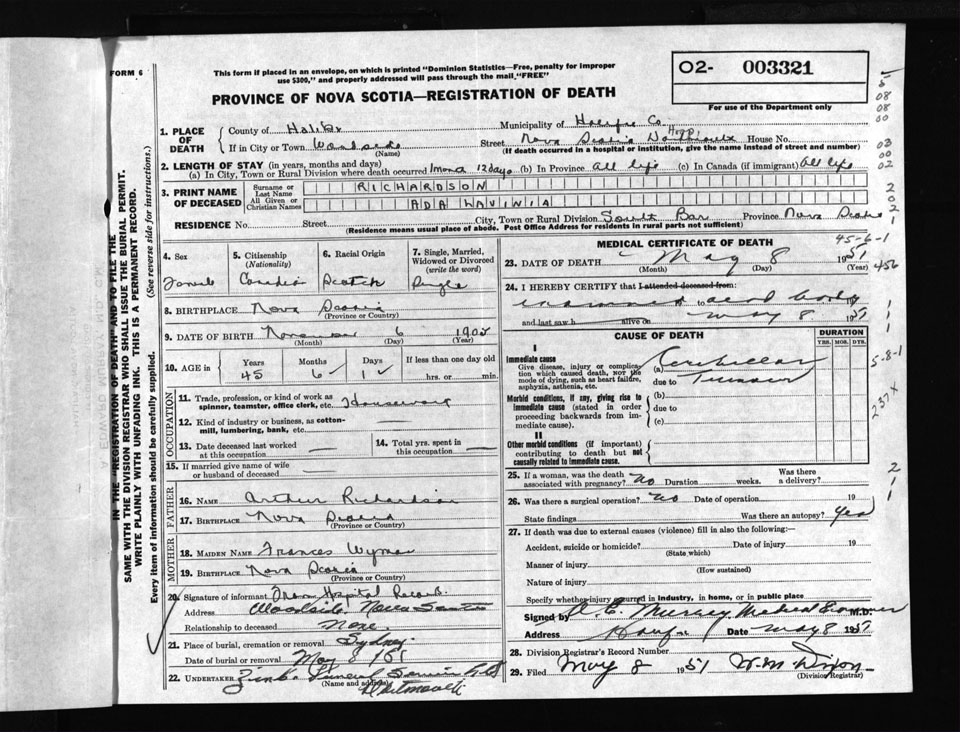 FORM 6
This form if placed in an envelope, on which is printed "Dominion Statistics—Free, penalty for improper
use $300," and properly addressed will pass through the mail "FREE"
PROVINCE OF NOVA SCOTIA—REGISTRATION OF DEATH
O2- 003321
For use of the Department only
IN THE "REGISTRATION OF DEATH" AND TO FILE THE
SAME WITH THE DIVISION REGISTRAR WHO SHALL ISSUE THE BURIAL PERMIT.
WRITE PLAINLY WITH UNFADING INK. THIS IS A PERMANENT RECORD.
Every item of information should be carefully supplied. (See reverse side for instructions.)
1. PLACE OF DEATH
County of Halifax Municipality of Halifax Co
If in City or Town Woodside Street Nova Scotia Hosp Dartmouth House No.
(Name) (If death occurred in a hospital or institution, give the name instead of street and number)
2. LENGTH OF STAY (in years, months and days)
(a) In City, Town or Rural Division where death occurred 1 mond 12 days (b) In Province All life (c) In Canada (if immigrant) All life
3. PRINT NAME OF DECEASED
Surname or Last Name RICHARDSON
All Given or Christian Names ADA LAVINIA
RESIDENCE No. Street City, Town or Rural Division South Bar Province Nova Scotia
(Residence means usual place of abode. Post Office Address for residents in rural parts not sufficient)
4. Sex 5. Citizenship (Nationality) 6. Racial Origin 7. Single, Married, Widowed or Divorced (write the word)
Female Canadian Scotch Single
8. BIRTHPLACE Nova Scotia
(Province or Country)
9. DATE OF BIRTH November 6 1905
(Month) (Day) (Year)
10. AGE in Years Months Days If less than one day old
45 6 1 hrs. or min.
OCCUPATION
11. Trade, profession, or kind of work as spinner, teamster, office clerk, etc. Housework
12. Kind of industry or business, as cotton-mill, lumbering, bank, etc.
13. Date deceased last worked at this occupation
14. Total yrs. spent in this occupation
15. If married give name of wife or husband of deceased
FATHER
16. NAME Arthur Richardson
17. BIRTHPLACE Nova Scotia
(Province or Country)
MOTHER
18. MAIDEN NAME Frances Wyman
19. BIRTHPLACE Nova Scotia
(Province or Country)
20. Signature of informant From Hospital Records.
Address Woodside, Nova Scotia
Relationship to deceased None.
21. Place of burial, cremation or removal Sydney
Date of burial or removal May 8
22. UNDERTAKER Funeral Service
(Name and address) Dartmouth
MEDICAL CERTIFICATE OF DEATH
23. DATE OF DEATH May 8 1951
(Month) (Day) (Year)
24. I HEREBY CERTIFY that I attended deceased from:
examined dead body 19
and last saw h alive on May 8 1951
CAUSE OF DEATH
DURATION
YRS. MOS. DYS.
I
Immediate cause
Give disease, injury or complication which caused death, NOT the mode of dying, such as heart failure, asphyxia, asthenia, etc.
(a) Cerebellar
due to Tumour
Morbid conditions, if any, giving rise to immediate cause (stated in order proceeding backwards from immediate cause).
(b)
due to
(c)
II
Other morbid conditions (if important) contributing to death but not causally related to immediate cause.
25. If a woman, was the death associated with pregnancy? No Duration weeks. Was there a delivery?
26. Was there a surgical operation? No Date of operation 19
State findings Was there an autopsy? Yes
27. If death was due to external causes (violence) fill in also the following:—
Accident, suicide or homicide? Date of injury 19
(State which)
Manner of injury
(How sustained)
Nature of injury
Specify whether injury occurred in industry, in home, or in public place
Signed by Murray Medical Examiner M.D.
Address Halifax Date May 8 1951
28. Division Registrar's Record Number
29. Filed May 8 1951 W. M. Dixon
(Division Registrar)
45-6-1
456
5-8-1
237X